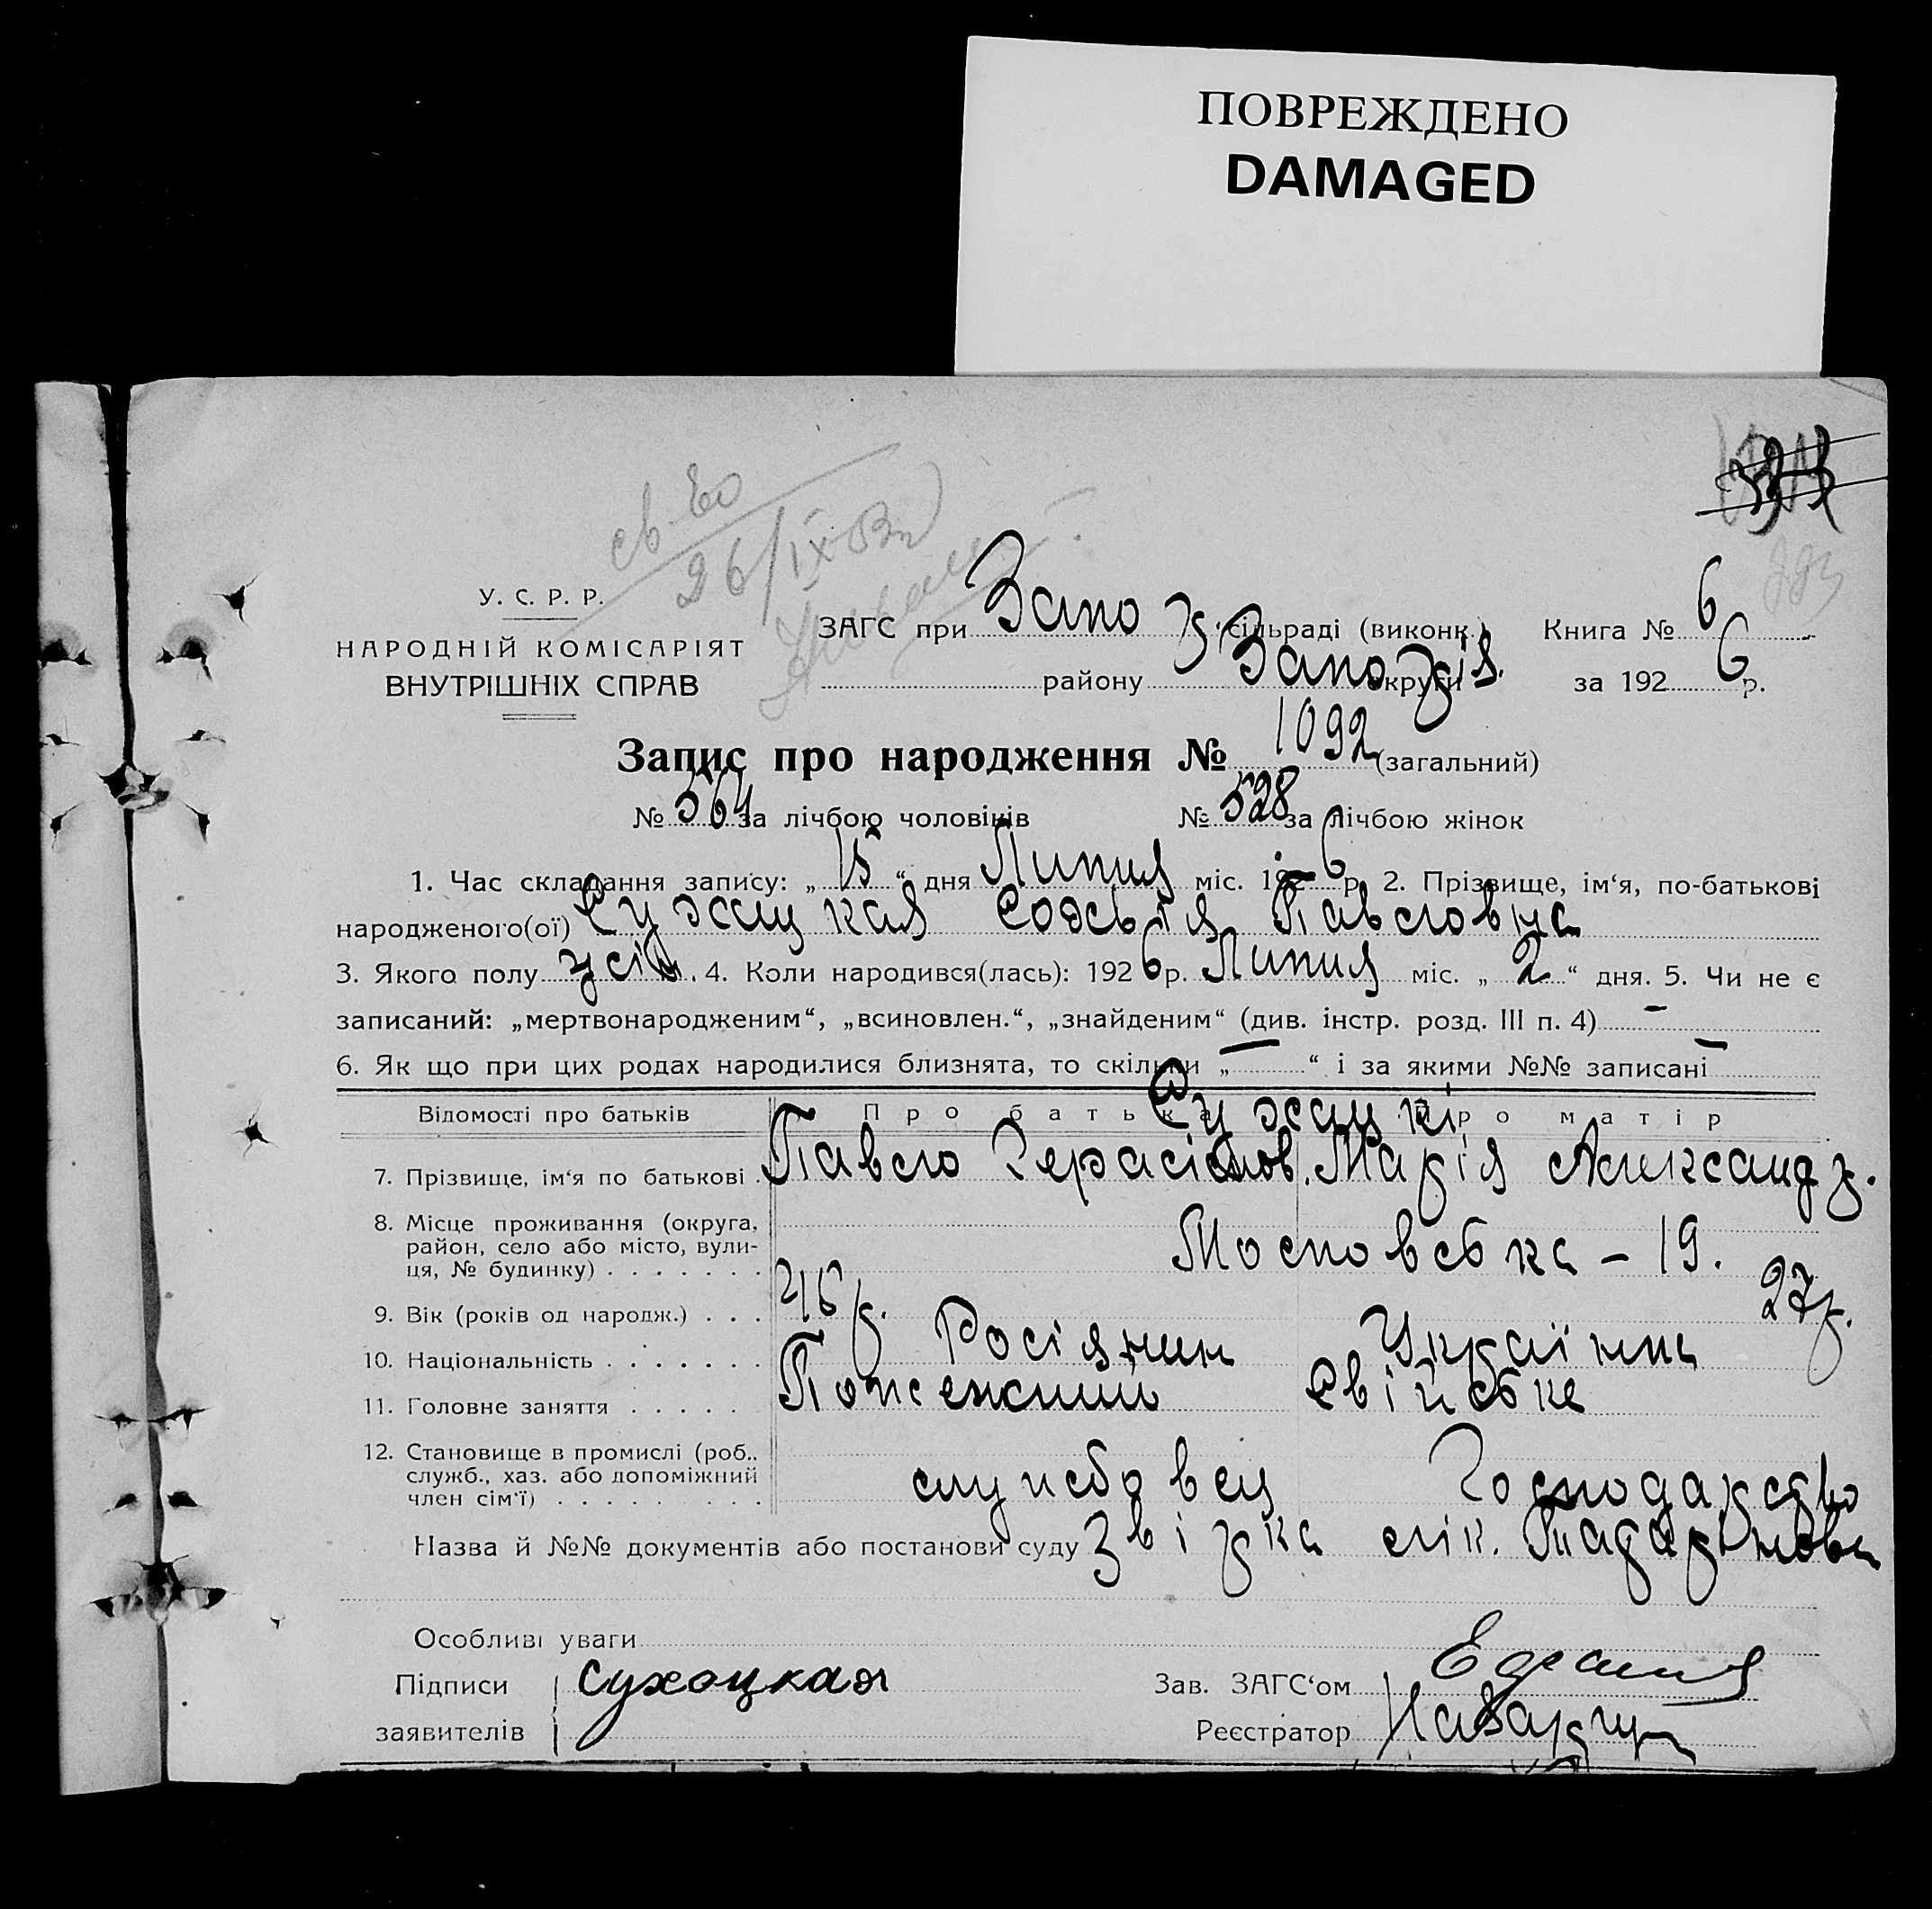 ПОВРЕЖДЕНО
DAMAGED
У. С. Р. Р.
НАРОДНІЙ КОМІСАРІЯТ
ВНУТРІШНІХ СПРАВ
26/IX
ЗАГС при Запо сільраді (виконк.) Книга № 6
району округи за 192 6 р.
Запис про народження № 1092 (загальний)
№ 564 за лічбою чоловіків № 528 за лічбою жінок
1. Час складання запису: „ 15 “ дня Липня міс. 192 6 р. 2. Прізвище, ім‘я, по-батькові
народженого(ої) Сухацкая Павловна
3. Якого полу 4. Коли народився(лась): 192 6 р. Липня міс. „ 2 “ дня. 5. Чи не є
записаний: „мертвонародженим“, „всиновлен.“, „знайденим“ (див. інстр. розд. III п. 4) —
6. Як що при цих родах народилися близнята, то скільки „ — “ і за якими №№ записані —
Відомості про батьків Про батька Про матір
Сухацкі
7. Прізвище, ім‘я по батькові . Павло Герасімов. Марія Александр.
8. Місце проживання (округа,
район, село або місто, вули-
ця, № будинку) . . . . . . . Московська – 19.
9. Вік (років од народж.) . . . 46 р. 27 р.
10. Національність . . . . . . . Росіянин Українка
11. Головне заняття . . . . . Пожежний Свійське
12. Становище в промислі (роб.,
служб., хаз. або допоміжний
член сім‘ї) . . . . . . . . . службовец Господарство
Назва й №№ документів або постанови суду Звірка лік.
Особливі уваги
Підписи Сухоцкая Зав. ЗАГС‘ом
заявителів Реєстратор